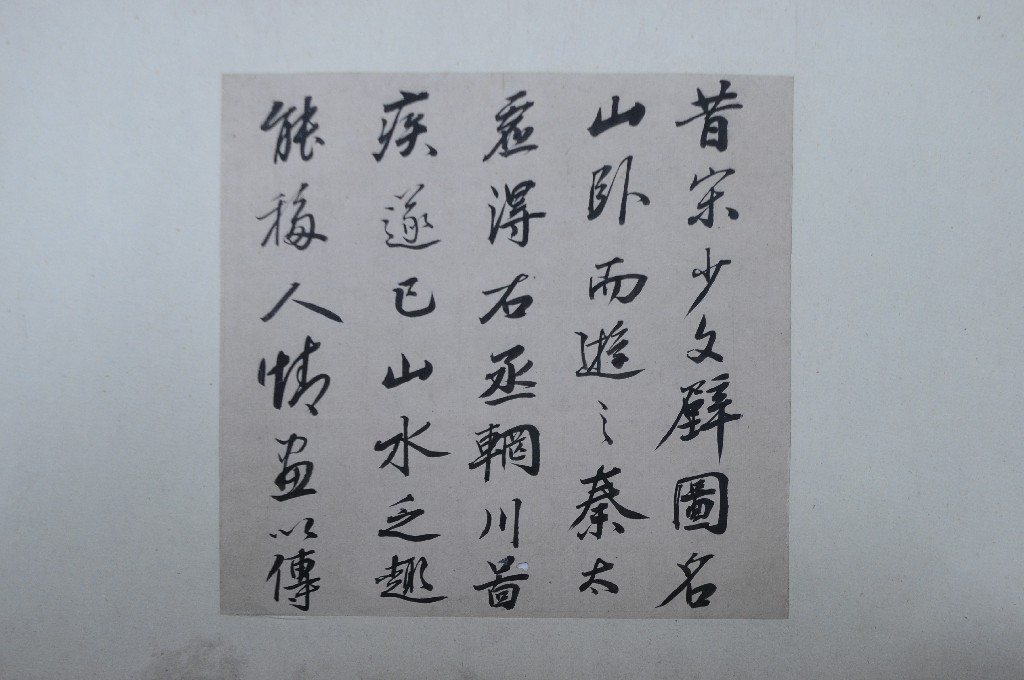 昔宗少文壁圖名
山卧而遊之秦太
虛得右丞輞川啚
疾遂已山水之趣
能移人情畫以傳